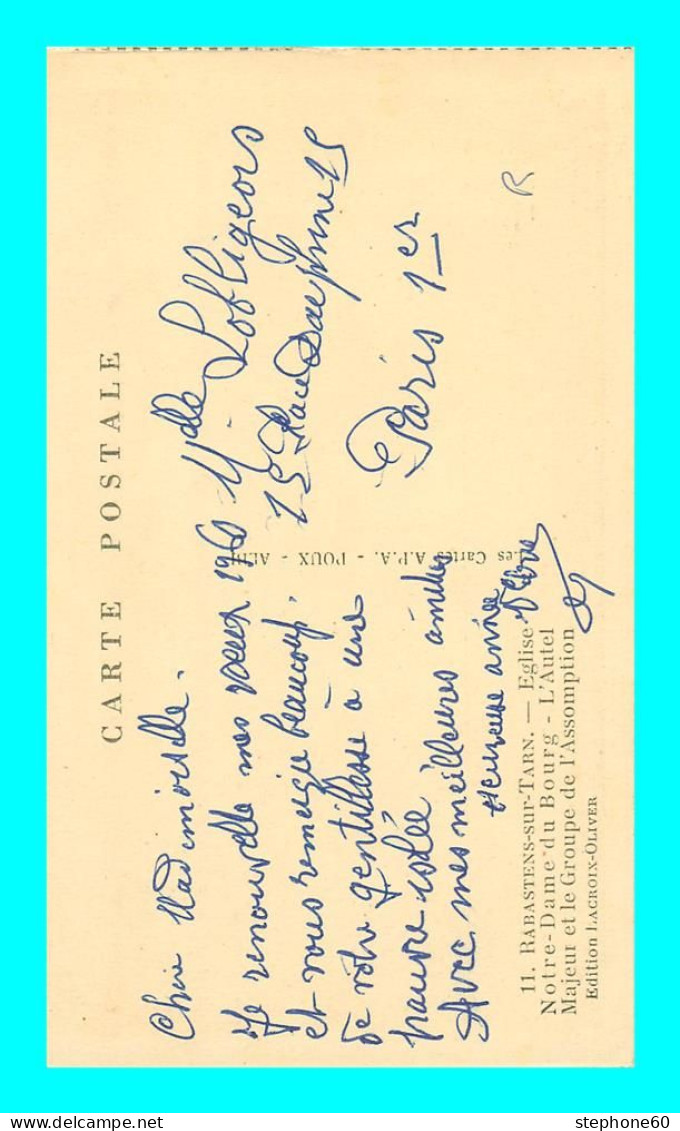 CARTE POSTALE
Chère Mademoiselle.
Je renouvelle mes vœux 1960
et vous remercie beaucoup.
de votre gentillesse à une
pauvre isolée
Avec mes meilleures amitiés
Heureuse année
Melle Lobligeois
15 Place Dauphine 15
Paris 1er
R
Les Cartes A.P.A. - POUX - ALBI
11. RABASTENS-SUR-TARN. — Eglise
Notre-Dame du Bourg - L'Autel
Majeur et le Groupe de l'Assomption
Edition LACROIX-OLIVER
stephone60